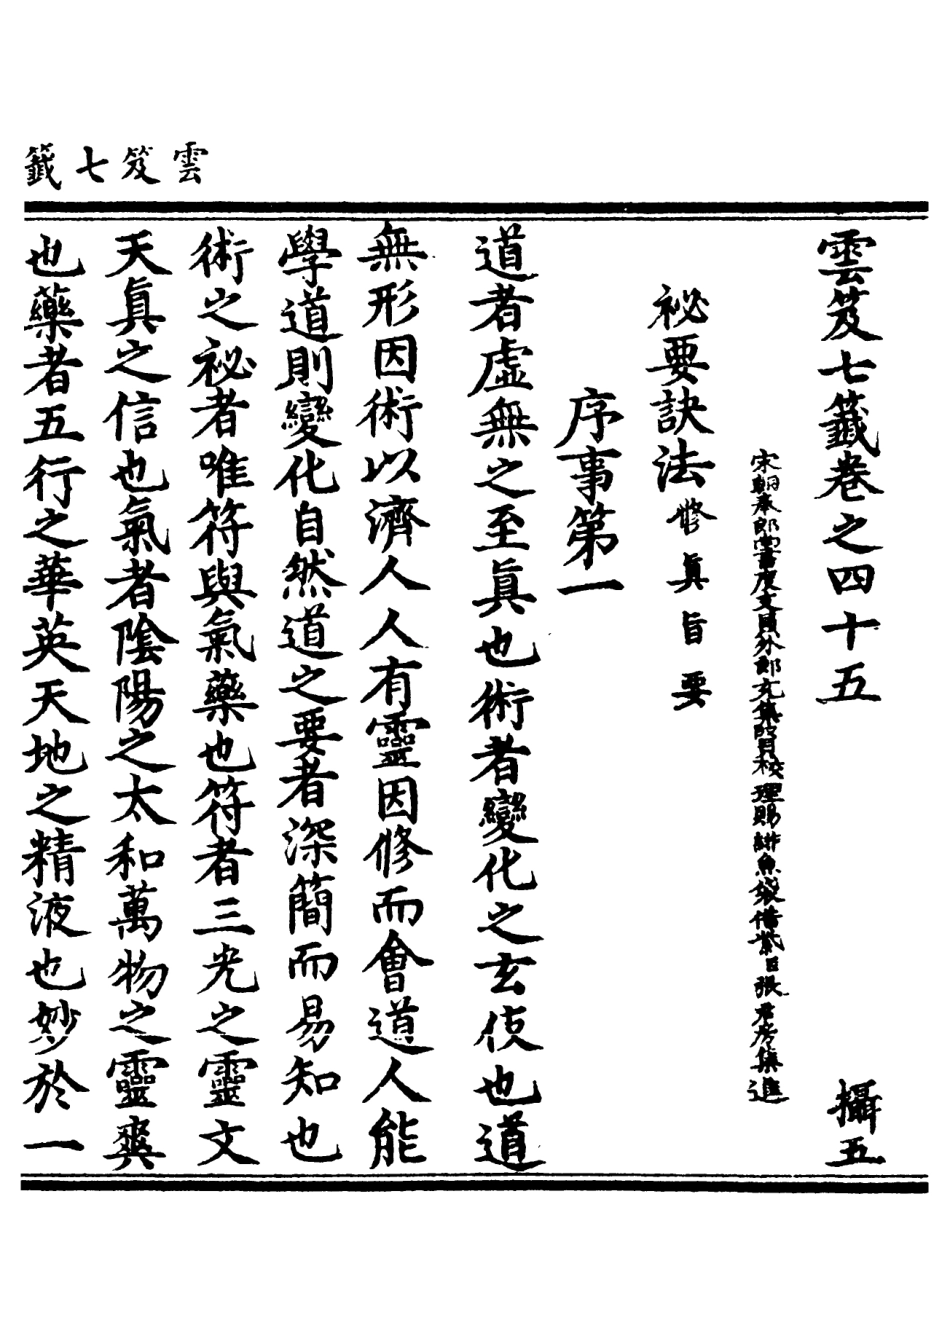 雲笈七籤
雲笈七籤卷之四十五 攝五
宋朝奉郎尚書度支員外郎充集賢校理賜緋魚袋借紫臣張君房集進
祕要訣法 修眞旨要
序事第一
道者虛無之至眞也術者變化之玄伎也道
無形因術以濟人人有靈因修而會道人能
學道則變化自然道之要者深簡而易知也
術之祕者唯符與氣藥也符者三光之靈文
天眞之信也氣者陰陽之太和萬物之靈爽
也藥者五行之華英天地之精液也妙於一